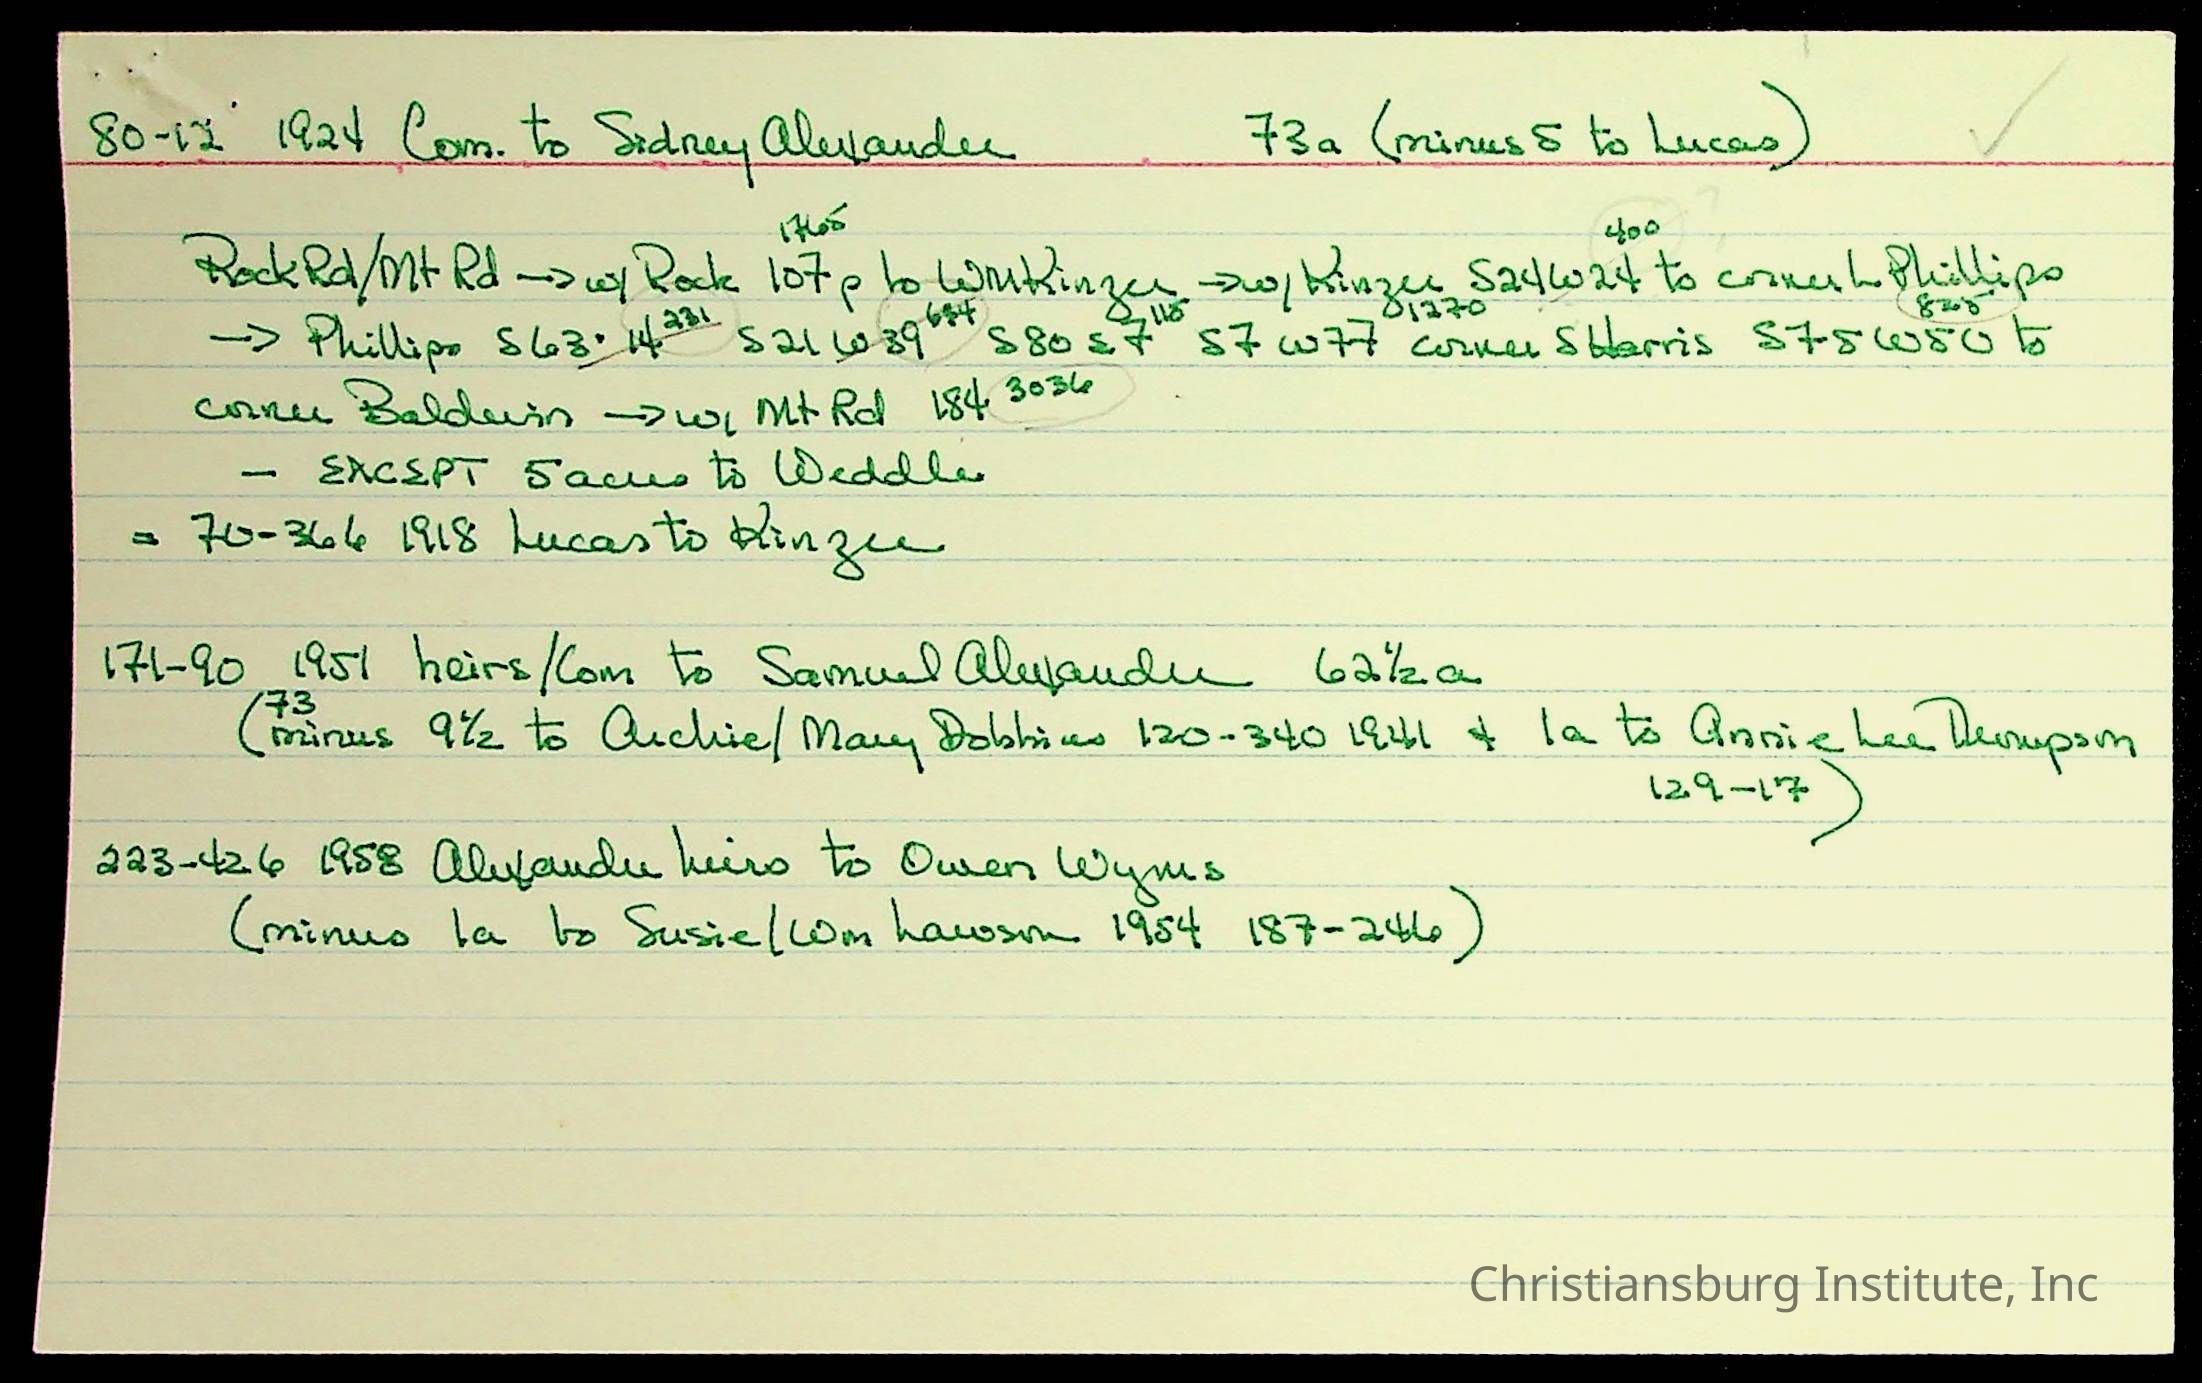 80-12 1924 Com. to Sidney Alexander 73a (minus 5 to Lucas)
1765 400
Rock Rd/Mt Rd → w/ Rock 107p to WM Kinzer → w/ Kinzer S24W24 to corner L Phillips
231 644 115 1270 825
→ Phillips S63. 14 S21W39 S80E7 S7W77 corner S Harris S75W50 to
corner Baldwin → w/ Mt Rd 184 3036
- EXCEPT 5 acres to Weddle
= 70-366 1918 Lucas to Kinzer
171-90 1951 heirs/Com to Samuel Alexander 62½a
73
(minus 9½ to Archie/Mary Dobbins 120-340 1941 & 1a to Annie Lee Thompson
129-17)
223-426 1958 Alexander heirs to Owen Wyms
(minus 1a to Susie/Wm Lawson 1954 187-246)
Christiansburg Institute, Inc